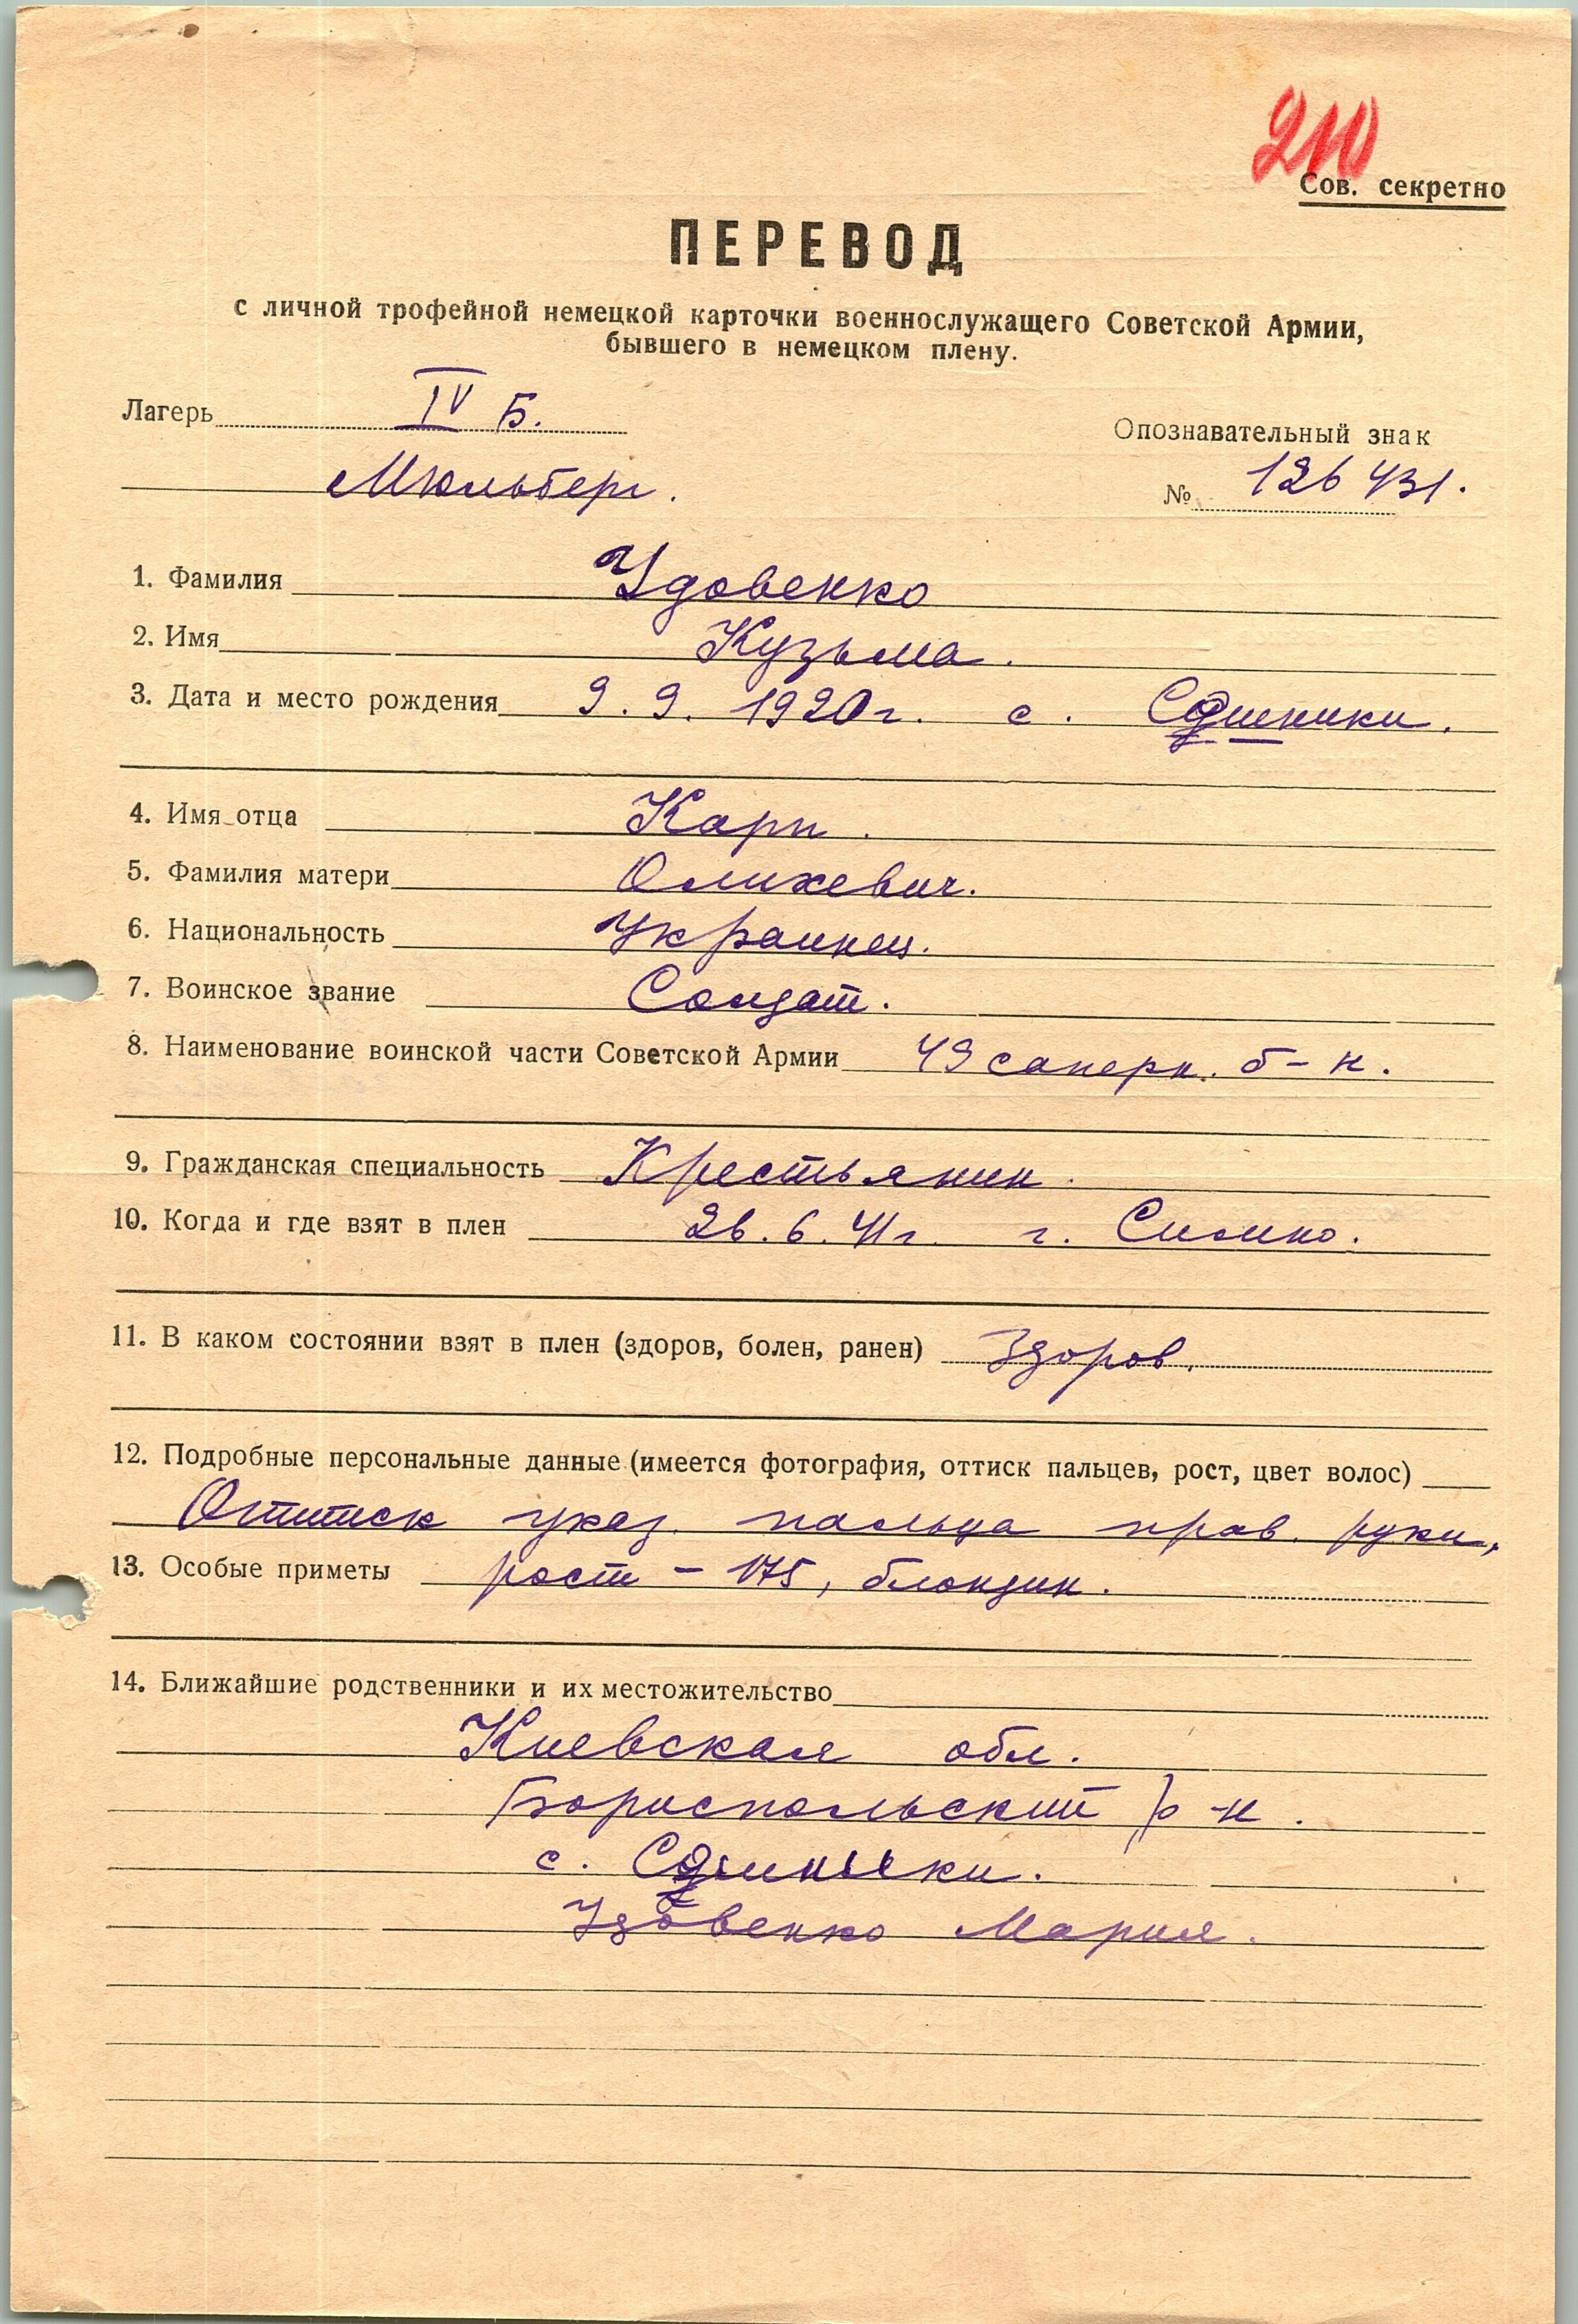 210
Сов. секретно
ПЕРЕВОД
с личной трофейной немецкой карточки военнослужащего Советской Армии,
бывшего в немецком плену.
Лагерь IV Б.
Опознавательный знак
Мюльберг.
№ 126431.
1. Фамилия Удовенко
2. Имя Кузьма.
3. Дата и место рождения 9.9.1920г. с.
4. Имя отца Карп.
5. Фамилия матери Олихевич.
6. Национальность Украинец.
7. Воинское звание Солдат.
8. Наименование воинской части Советской Армии 49 саперн. б-н.
9. Гражданская специальность Крестьянин.
10. Когда и где взят в плен 26.6.41г. г. Сисино.
11. В каком состоянии взят в плен (здоров, болен, ранен) Здоров.
12. Подробные персональные данные (имеется фотография, оттиск пальцев, рост, цвет волос)
Оттиск указ. пальца прав. руки,
13. Особые приметы рост - 175, блондин.
14. Ближайшие родственники и их местожительство
Киевская обл.
Бориспольский р-н.
с.
Удовенко Мария.